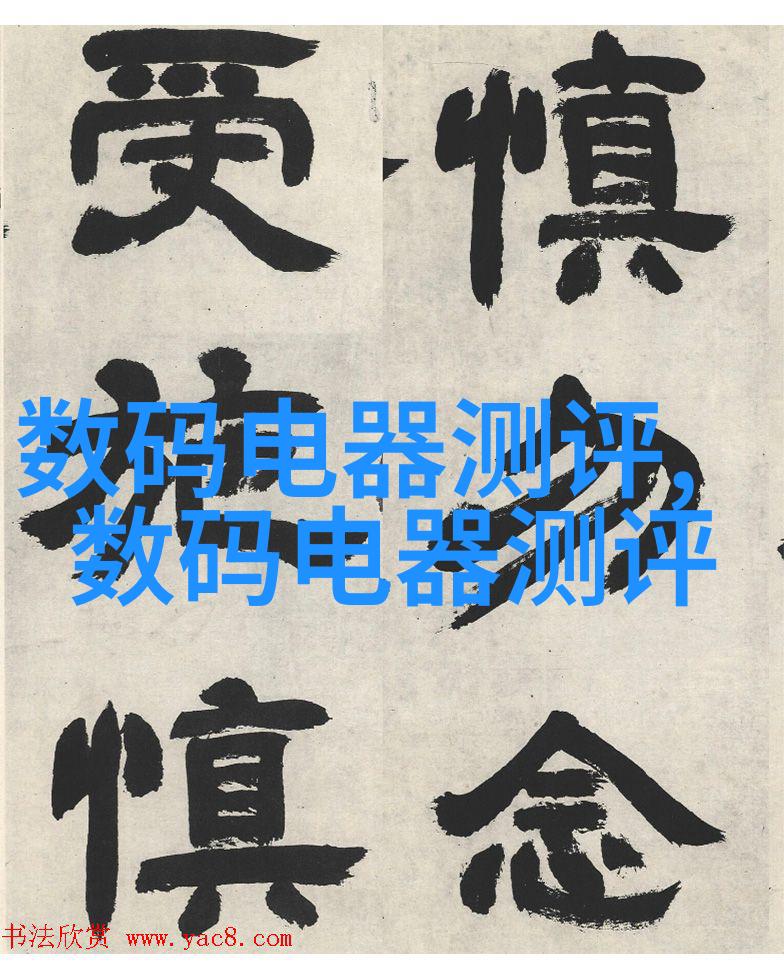 慎勿念
受施慎
数码电器测评,
数码电器测评
书法欣赏 www.yac8.com